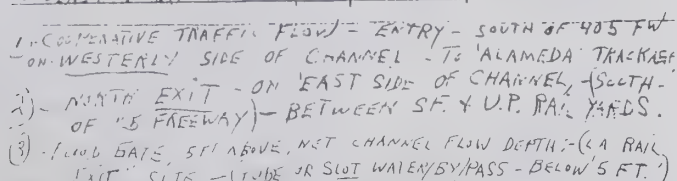 1. COOPERATIVE TRAFFIC FLOW) - ENTRY - SOUTH OF 405 FW
ON WESTERLY SIDE OF CHANNEL - TO 'ALAMEDA' TRACKAGE
2) - NORTH EXIT - ON 'EAST SIDE OF CHANNEL, - (SOUTH -
OF "5 FREEWAY) - BETWEEN S.F. & U.P. RAIL YARDS.
(3) - FLOOD GATE, 5FT ABOVE, NET CHANNEL FLOW DEPTH :- (LA RAIL
EXIT" SITE - (TUBE OR SLOT WATER/BY/PASS - BELOW '5 FT.')